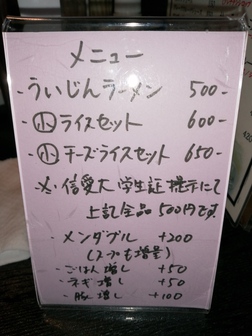 メニュー
・ういじんラーメン 500-
・㊙ライスセット 600-
・㊙チーズライスセット 650-
※信愛大学生証提示にて
上記全品500円です。
・メンダブル +200
(スープも増量)
・ごはん増し +50
・ネギ増し +50
・豚増し +100